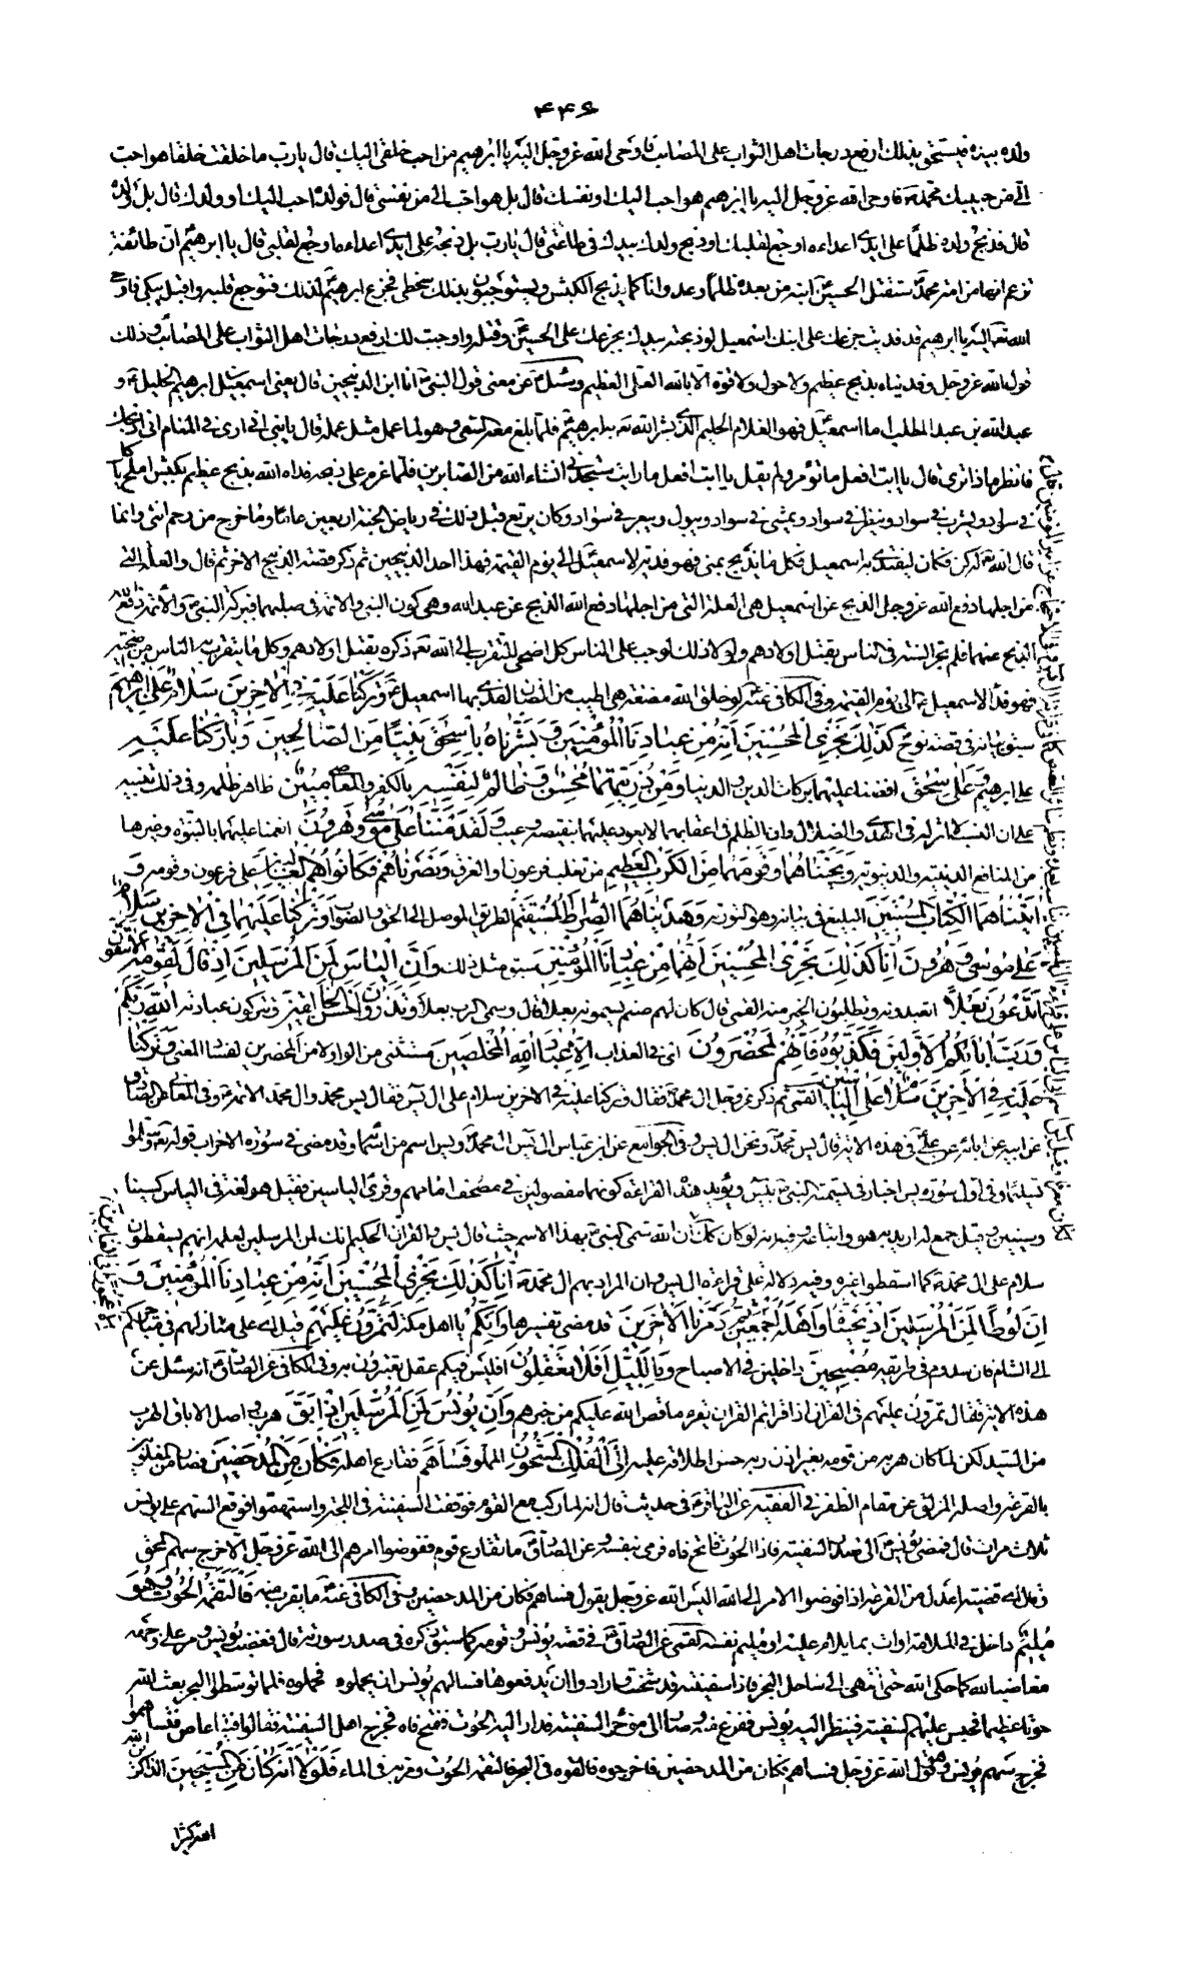 ۴۴۶
ولده بيده فيستحق بذلك ارفع درجات اهل الثواب على المصائب فاوحى الله عز وجل اليه يا ابرهيم من احب خلقى اليك قال يا رب ما خلقت خلقا هو احب
الىّ من حبيبك محمد ص فاوحى الله عز وجل اليه يا ابرهيم هو احب اليك او نفسك قال بل هو احب الى من نفسى قال فولده احب اليك او ولدك قال بل ولده
قال فذبح ولده ظلما على ايدى اعداءه اوجع لقلبك او ذبح ولدك بيدك فى طاعتى قال يا رب بل ذبحه على ايدى اعداءه اوجع لقلبى قال يا ابرهيم ان طائفة
تزعم انها من امة محمد ستقتل الحسين ابنه من بعده ظلما وعدوانا كما يذبح الكبش ويستوجبون بذلك سخطى فجزع ابرهيم لذلك فتوجع قلبه واقبل يبكى فاوحى
الله تعالى اليه يا ابرهيم قد فديت جزعك على ابنك اسمعيل لو ذبحته بيدك بجزعك على الحسين وقتله واوجبت لك ارفع درجات اهل الثواب على المصائب وذلك
قول الله عز وجل وفديناه بذبح عظيم ولا حول ولا قوة الا بالله العلى العظيم وسئل عن معنى قول النبى ص انا ابن الذبيحين قال يعنى اسمعيل بن ابرهيم الخليل و
عبد الله بن عبد المطلب اما اسمعيل فهو الغلام الحليم الذى بشر الله به ابرهيم فلما بلغ معه السعى وهو لما عمل مثل عمله قال يا بنى انى ارى فى المنام انى اذبحك
فانظر ماذا ترى قال يا ابت افعل ما تؤمر ولم يقل يا ابت افعل ما رايت ستجدنى انشاء الله من الصابرين فلما عزم على ذبحه فداه الله بذبح عظيم بكبش املح ياكل
فى سواد ويشرب فى سواد وينظر فى سواد ويمشى فى سواد ويبول ويبعر فى سواد وكان يرتع قبل ذلك فى رياض الجنة اربعين عاما وما خرج من رحم انثى وانما
قال الله له كن فكان ليفتدى به اسمعيل فكل ما يذبح بمنى فهو فدية لاسمعيل الى يوم القيمة فهذا احد الذبيحين ثم ذكر قصة الذبيح الاخر ثم قال والعلة التى
من اجلها دفع الله عز وجل الذبح عن اسمعيل هى العلة التى من اجلها دفع الله الذبح عن عبد الله وهى كون النبى والائمة فى صلبهما فببركة النبى والائمة دفع الله
الذبح عنهما فلم تجر السنة فى الناس بقتل اولادهم ولولا ذلك لوجب على الناس كل اضحى التقرب الى الله تعالى ذكره بقتل اولادهم وكل ما يتقرب به الناس من اضحية
فهو فداء لاسمعيل الى يوم القيمة وفى الكافى عنه لو خلق الله مضغة هى اطيب من الضان لفدى بها اسمعيل وَتَرَكْنا عَلَيْهِ فِى الْاخِرينَ سَلامٌ عَلى اِبْرهيمَ
سبق بيانه فى قصة نوح كَذلِكَ نَجْزِى الْمُحْسِنينَ اِنَّهُ مِنْ عِبادِنَا الْمُؤْمِنينَ وَبَشَّرْناهُ بِاِسْحقَ نَبِيًّا مِنَ الصّالِحينَ وَبارَكْنا عَلَيْهِ
على ابرهيم وَعَلى اِسْحقَ افضنا عليهما بركات الدين والدنيا وَمِنْ ذُرِّيَّتِهِما مُحْسِنٌ وَظالِمٌ لِنَفْسِه بالكفر والمعاصى مُبينٌ ظاهر ظلمه وفى ذلك تنبيه
على ان النسب لا اثر له فى الهدى والضلال وان الظلم فى اعقابهما لا يعود عليهما بنقيصة وعيب وَلَقَدْ مَنَنّا عَلى مُوسى وَهرُونَ انعمنا عليهما بالنبوة وغيرها
من المنافع الدينية والدنيوية وَنَجَّيْناهُما وَقَوْمَهُما مِنَ الْكَرْبِ الْعَظيمِ من تغلب فرعون او الغرق وَنَصَرْناهُمْ فَكانُوا هُمُ الْغالِبينَ على فرعون وقومه وَ
اتَيْناهُمَا الْكِتابَ الْمُسْتَبينَ البليغ فى بيانه وهو التورية وَهَدَيْناهُمَا الصِّراطَ الْمُسْتَقيمَ الطريق الموصل الى الحق والصواب وَتَرَكْنا عَلَيْهِما فِى الْاخِرينَ سَلامٌ
عَلى مُوسى وَهرُونَ اِنّا كَذلِكَ نَجْزِى الْمُحْسِنينَ اِنَّهُما مِنْ عِبادِنَا الْمُؤْمِنينَ سبق مثل ذلك وَاِنَّ اِلْياسَ لَمِنَ الْمُرْسَلينَ اِذْ قالَ لِقَوْمِه اَلا تَتَّقُونَ
اَتَدْعُونَ بَعْلاً اتعبدونه وتطلبون الخير منه القمى قال كان لهم صنم يسمونه بعلا قال وسمى الرب بعلا وَتَذَرُونَ اَحْسَنَ الْخالِقينَ وتتركون عبادته اَللّهَ رَبَّكُمْ
وَرَبَّ ابائِكُمُ الْاَوَّلينَ فَكَذَّبُوهُ فَاِنَّهُمْ لَمُحْضَرُونَ اى فى العذاب اِلّا عِبادَ اللّهِ الْمُخْلَصينَ مستثنى من الواو لا من المحضرين لفساد المعنى وَتَرَكْنا
عَلَيْهِ فِى الْاخِرينَ سَلامٌ عَلى اِلْ ياسينَ القمى ثم ذكر عز وجل ال محمد فقال وتركنا عليه فى الاخرين سلام على ال يس فقال يس محمد وال محمد الائمة وفى المعانى عن الصادق
عن ابيه عن ابائه عن على فى هذه الاية قال يس محمد ونحن ال يس وفى الجوامع عن ابن عباس ال يس ال محمد ويس اسم من اسمائه وقد مضى فى سورة الاحزاب قوله تعالى وسلموا
تسليما وفى اول سورة يس اخبار فى تسمية النبى ص بيس ويؤيد هذه القراءة كونهما مفصولين فى مصحف امامهم وقرئ الياسين فقيل هو لغة فى الياس كسينا
وسينين وقيل جمع له اريد به هو واتباعه وفيه انه لو كان كذلك ان الله سمى النبى ص بهذا الاسم حيث قال يس والقران الحكيم انك لمن المرسلين لعلمه انهم يسقطون
سلام على ال محمد كما اسقطوا غيره وفيه دلالة على قراءة ال يس وان المراد بهم ال محمد اِنّا كَذلِكَ نَجْزِى الْمُحْسِنينَ اِنَّهُ مِنْ عِبادِنَا الْمُؤْمِنينَ وَ
اِنَّ لُوطًا لَمِنَ الْمُرْسَلينَ اِذْ نَجَّيْناهُ وَاَهْلَهُ اَجْمَعينَ ثُمَّ دَمَّرْنَا الْاخَرينَ قد مضى تفسيرها وَاِنَّكُمْ يا اهل مكة لَتَمُرُّونَ عَلَيْهِمْ قيل اى على منازلهم فى متاجركم
الى الشام فان سدوم فى طريقه مُصْبِحينَ داخلين فى الاصباح وَبِاللَّيْلِ اَفَلا تَعْقِلُونَ افليس فيكم عقل تعتبرون به وفى الكافى عن الصادق انه سئل عن
هذه الاية فقال تمرون عليهم فى القران اذا قراتم القران تقرء ما قص الله عليكم من خبرهم وَاِنَّ يُونُسَ لَمِنَ الْمُرْسَلينَ اِذْ اَبَقَ هرب واصل الاباق الهرب
من السيد لكن لما كان هربه من قومه بغير اذن ربه حسن اطلاقه عليه اِلَى الْفُلْكِ الْمَشْحُونِ المملو فَساهَمَ فقارع اهله فَكانَ مِنَ الْمُدْحَضينَ فصار من المغلوبين
بالقرعة واصله المزلق عن مقام الظفر فى الفقيه عن الباقر فى حديث قال انه لما ركب مع القوم فوقفت السفينة فى اللجة واستهموا فوقع السهم على يونس
ثلاث مرات قال فمضى يونس الى صدر السفينة فاذا الحوت فاتح فاه فرمى بنفسه وعن الصادق ما تقارع قوم ففوضوا امرهم الى الله عز وجل الا خرج سهم المحق
وقال اى قضية اعدل من القرعة اذا فوضوا الامر الى الله اليس الله عز وجل يقول فساهم فكان من المدحضين وفى الكافى عنه ما يقرب منه فَالْتَقَمَهُ الْحُوتُ وَهُوَ
مُليمٌ داخل فى الملامة او ات بما يلام عليه او مليم نفسه القمى عن الصادق فى قصة يونس وقومه كما سبق ذكره فى صدر سورته قال فغضب يونس ومر على وجهه
مغاضبا لله كما حكى الله حتى انتهى الى ساحل البحر فاذا سفينة قد شحنت وارادوا ان يدفعوها فسالهم يونس ان يحملوه فحملوه فلما توسطوا البحر بعث الله
حوتا عظيما فحبس عليهم السفينة فنظر اليه يونس ففزع منه وصار الى مؤخر السفينة فدار اليه الحوت ففتح فاه فخرج اهل السفينة فقالوا فينا عاص فتساهموا
فخرج سهم يونس وهو قول الله عز وجل فساهم فكان من المدحضين فاخرجوه فالقوه فى البحر فالتقمه الحوت ومر به فى الماء فَلَوْلا اَنَّهُ كانَ مِنَ الْمُسَبِّحينَ الذاكرين
الله كثيرا